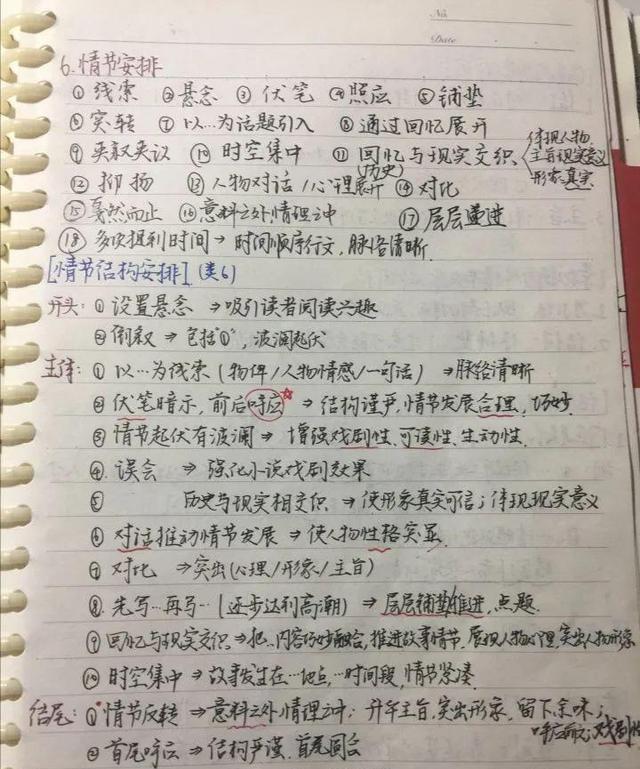 No.
Date
6.情节安排
①线索 ②悬念 ③伏笔 ④照应 ⑤铺垫
⑥突转 ⑦以…为话题引入 ⑧通过回忆展开
⑨夹叙夹议 ⑩时空集中 ⑪回忆与现实交织(历史) 体现人物 主旨现实意义 形象真实
⑫抑扬 ⑬人物对话/心理展开 ⑭对比
⑮戛然而止 ⑯意料之外情理之中 ⑰层层递进
⑱多次提到时间→时间顺序行文,脉络清晰.
[情节结构安排](类6)
开头:①设置悬念→吸引读者阅读兴趣
②倒叙→包括"①",波澜起伏
主体:①以…为线索(物件/人物情感/一句话)→脉络清晰
②伏笔暗示,前后呼应→结构谨严,情节发展合理,巧妙
③情节起伏有波澜→增强戏剧性.可读性.生动性.
④误会→强化小说戏剧效果
⑤历史与现实相交织→使形象真实可信;体现现实意义
⑥对话推动情节发展→使人物性格突显.
⑦对比→突出(心理/形象/主旨)
⑧先写…再写…(逐步达到高潮)→层层铺垫推进,点题.
⑨回忆与现实交织→把…内容巧妙融合,推进故事情节,展现人物心理,突出人物形象
⑩时空集中→故事发生在…地点,…时间段,情节紧凑.
结尾:①情节反转→意料之外情理之中;升华主旨,突出形象,留下余味;
呼应前文;戏剧性
②首尾呼应→结构严谨.首尾圆合